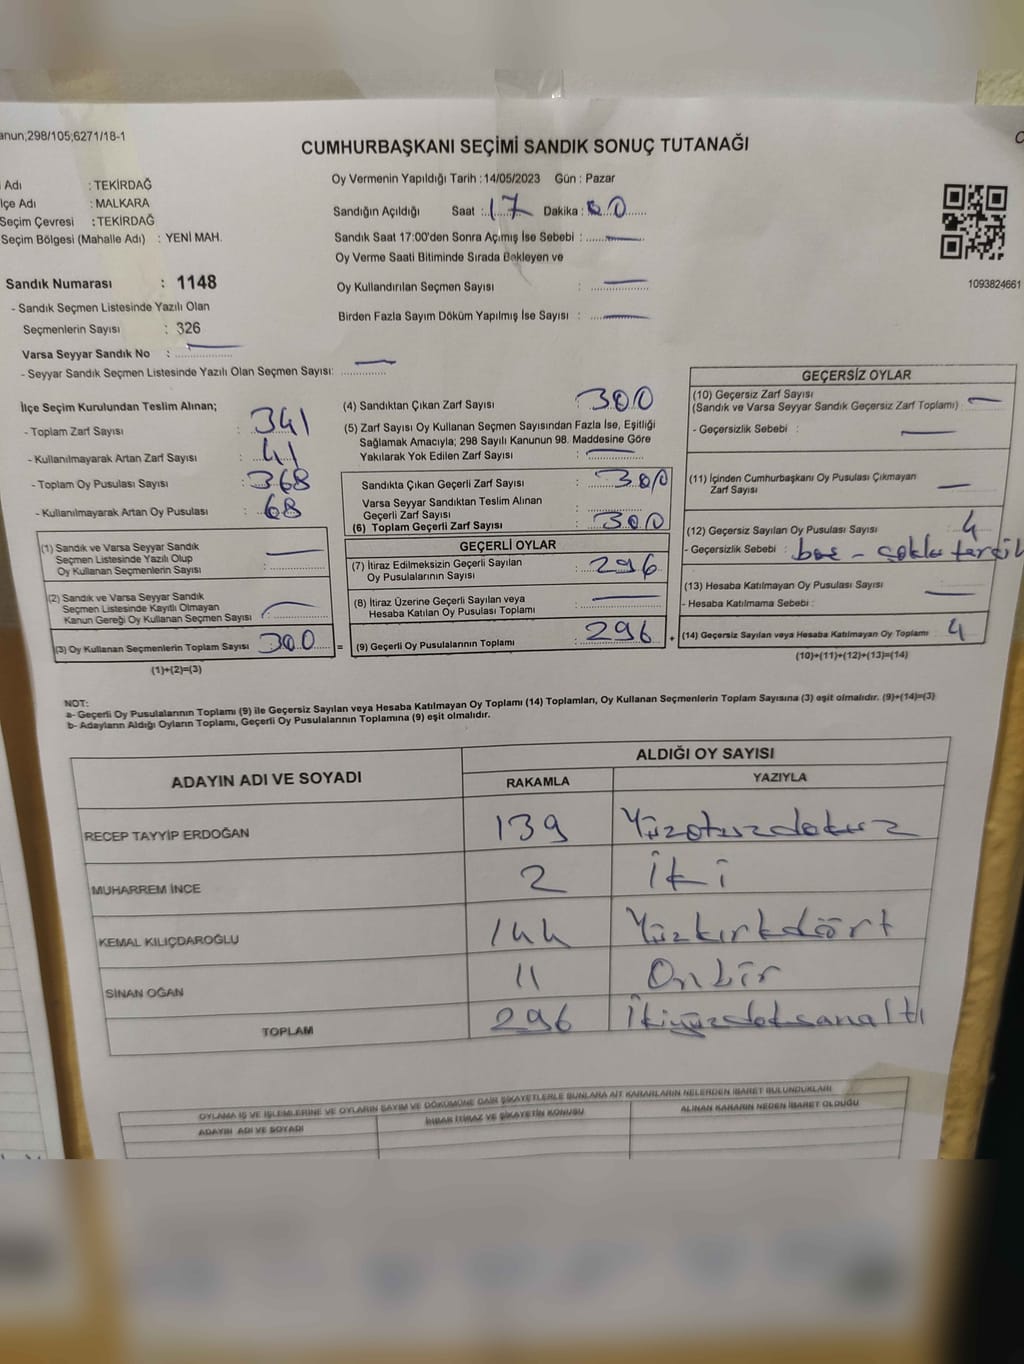 anun;298/105;6271/18-1
CUMHURBAŞKANI SEÇİMİ SANDIK SONUÇ TUTANAĞI
Adı : TEKİRDAĞ
lçe Adı : MALKARA
Seçim Çevresi : TEKİRDAĞ
Seçim Bölgesi (Mahalle Adı) : YENİ MAH.
Sandık Numarası : 1148
- Sandık Seçmen Listesinde Yazılı Olan
Seçmenlerin Sayısı : 326
Varsa Seyyar Sandık No :
- Seyyar Sandık Seçmen Listesinde Yazılı Olan Seçmen Sayısı:
Oy Vermenin Yapıldığı Tarih : 14/05/2023 Gün : Pazar
Sandığın Açıldığı Saat : 17 Dakika :
Sandık Saat 17:00'den Sonra Açımış İse Sebebi :
Oy Verme Saati Bitiminde Sırada Bekleyen ve
Oy Kullandırılan Seçmen Sayısı :
Birden Fazla Sayım Döküm Yapılmış İse Sayısı :
1093824661
İlçe Seçim Kurulundan Teslim Alınan;
- Toplam Zarf Sayısı : 341
- Kullanılmayarak Artan Zarf Sayısı : 41
- Toplam Oy Pusulası Sayısı : 368
- Kullanılmayarak Artan Oy Pusulası : 68
(1) Sandık ve Varsa Seyyar Sandık
Seçmen Listesinde Yazılı Olup
Oy Kullanan Seçmenlerin Sayısı :
(2) Sandık ve Varsa Seyyar Sandık
Seçmen Listesinde Kayıtlı Olmayan
Kanun Gereği Oy Kullanan Seçmen Sayısı :
(3) Oy Kullanan Seçmenlerin Toplam Sayısı 300 =
(1)+(2)=(3)
(4) Sandıktan Çıkan Zarf Sayısı : 300
(5) Zarf Sayısı Oy Kullanan Seçmen Sayısından Fazla İse, Eşitliği
Sağlamak Amacıyla; 298 Sayılı Kanunun 98. Maddesine Göre
Yakılarak Yok Edilen Zarf Sayısı :
Sandıkta Çıkan Geçerli Zarf Sayısı : 300
Varsa Seyyar Sandıktan Teslim Alınan
Geçerli Zarf Sayısı :
(6) Toplam Geçerli Zarf Sayısı : 300
GEÇERLİ OYLAR
(7) İtiraz Edilmeksizin Geçerli Sayılan
Oy Pusulalarının Sayısı : 296
(8) İtiraz Üzerine Geçerli Sayılan veya
Hesaba Katılan Oy Pusulası Toplamı :
(9) Geçerli Oy Pusulalarının Toplamı : 296 +
GEÇERSİZ OYLAR
(10) Geçersiz Zarf Sayısı
(Sandık ve Varsa Seyyar Sandık Geçersiz Zarf Toplamı) :
- Geçersizlik Sebebi :
(11) İçinden Cumhurbaşkanı Oy Pusulası Çıkmayan
Zarf Sayısı :
(12) Geçersiz Sayılan Oy Pusulası Sayısı : 4
- Geçersizlik Sebebi : boş - çoklu tercih
(13) Hesaba Katılmayan Oy Pusulası Sayısı :
- Hesaba Katılmama Sebebi :
(14) Geçersiz Sayılan veya Hesaba Katılmayan Oy Toplamı 4
(10)+(11)+(12)+(13)=(14)
NOT:
a- Geçerli Oy Pusulalarının Toplamı (9) ile Geçersiz Sayılan veya Hesaba Katılmayan Oy Toplamı (14) Toplamları, Oy Kullanan Seçmenlerin Toplam Sayısına (3) eşit olmalıdır. (9)+(14)=(3)
b- Adayların Aldığı Oyların Toplamı, Geçerli Oy Pusulalarının Toplamına (9) eşit olmalıdır.
ADAYIN ADI VE SOYADI
ALDIĞI OY SAYISI
RAKAMLA YAZIYLA
RECEP TAYYİP ERDOĞAN 139 Yüzotuzdokuz
MUHARREM İNCE 2 İki
KEMAL KILIÇDAROĞLU 144 Yüzkırkdört
SİNAN OĞAN 11 Onbir
TOPLAM 296 İkiyüzdoksanaltı
OYLAMA İŞ VE İŞLEMLERİNE VE OYLARIN SAYIM VE DÖKÜMÜNE DAİR ŞİKAYETLERLE BUNLARA AİT KARARLARIN NELERDEN İBARET BULUNDUKLARI
ADAYIN ADI VE SOYADI İHBAR İTİRAZ VE ŞİKAYETİN KONUSU ALINAN KARARIN NEDEN İBARET OLDUĞU